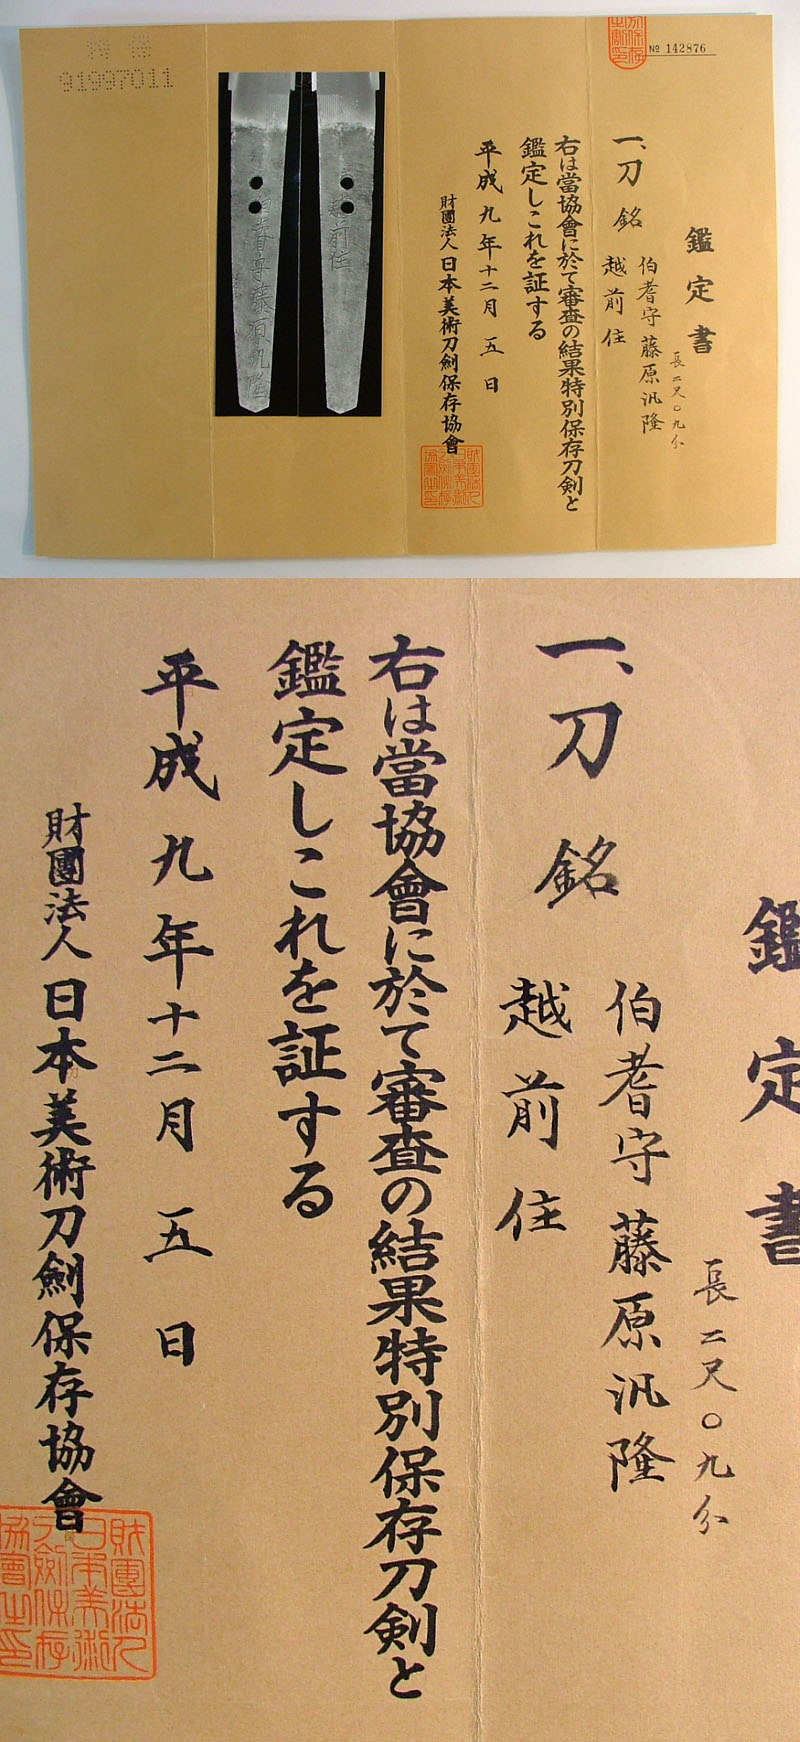 № 142876
鑑定書
長二尺〇九分
一、刀 銘
伯耆守藤原汎隆
越前住
右は當協會に於て審査の結果特別保存刀剣と
鑑定しこれを証する
平成九年十二月五日
財團法人日本美術刀劍保存協會
越前住
伯耆守藤原汎隆
91997011
鑑定書
長二尺〇九分
一、刀 銘
伯耆守藤原汎隆
越前住
右は當協會に於て審査の結果特別保存刀剣と
鑑定しこれを証する
平成九年十二月五日
財團法人日本美術刀劍保存協會
財團法人
日本美術
刀劍保存
協會之印